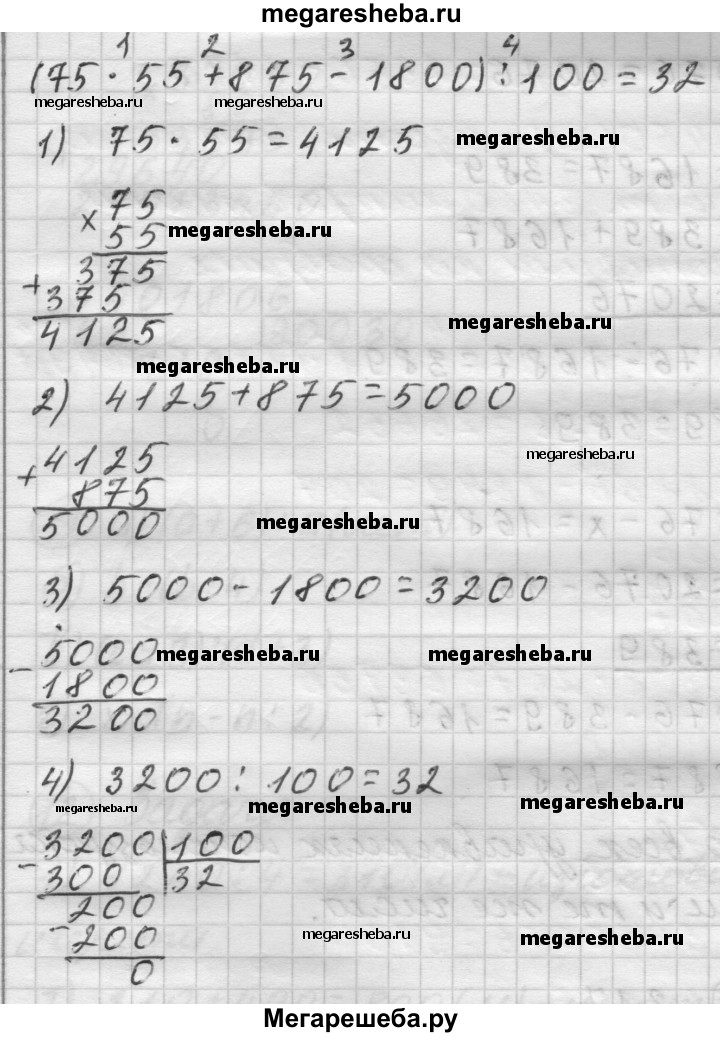 megaresheba.ru
1 2 3 4
(75 · 55 + 875 - 1800) : 100 = 32
megaresheba.ru megaresheba.ru
1) 75 · 55 = 4125 megaresheba.ru
× 75
55 megaresheba.ru
375
+ 375
4125 megaresheba.ru
megaresheba.ru
2) 4125 + 875 = 5000
+ 4125 megaresheba.ru
875
5000 megaresheba.ru
3) 5000 - 1800 = 3200
- 5000 megaresheba.ru megaresheba.ru
1800
3200
4) 3200 : 100 = 32
megaresheba.ru megaresheba.ru megaresheba.ru
- 3200 | 100
300 32
200
- 200 megaresheba.ru megaresheba.ru
0
Мегарешеба.ру